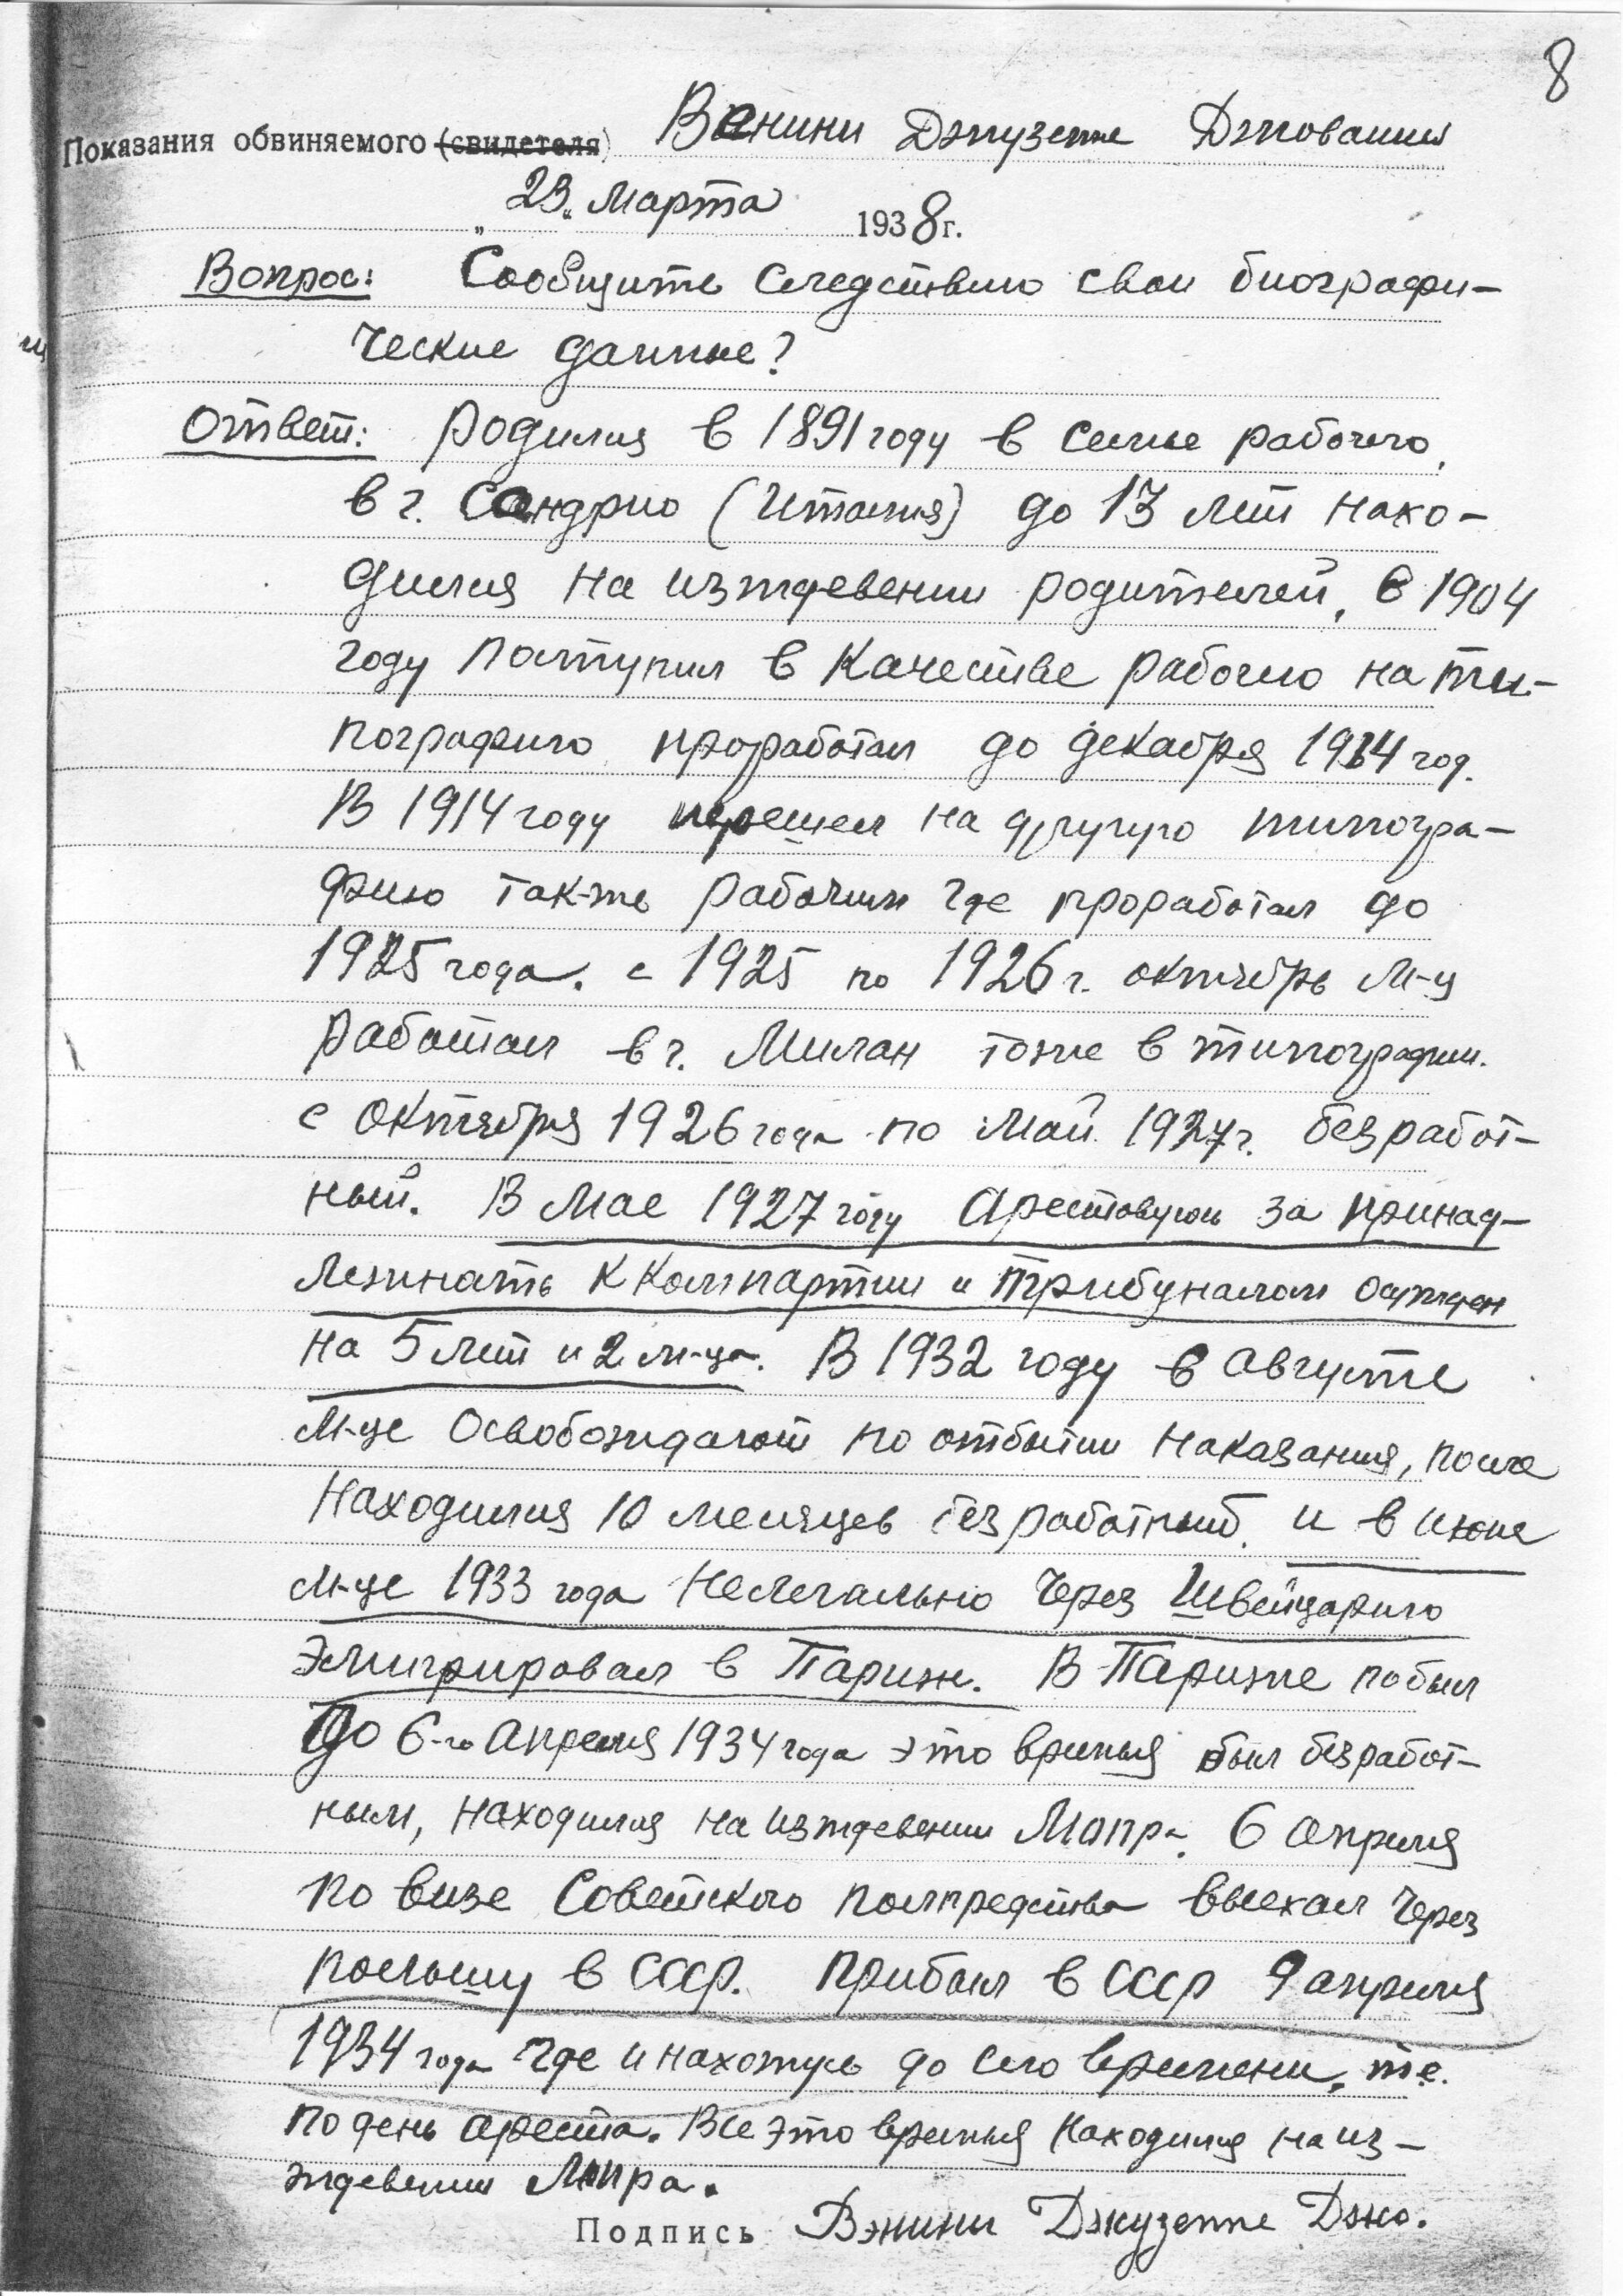 8
Показания обвиняемого (свидетеля) Венини Джузеппе Джованни
„23“ Марта 1938 г.
Вопрос: Сообщите следствию свои биографи-
ческие данные?
Ответ: Родился в 1891 году в семье рабочего,
в г. Сондрио (Италия) до 13 лет нахо-
дился на изждевении родителей, в 1904
году поступил в качестве рабочего на ти-
пографию проработал до декабря 1914 год.
В 1914 году перешел на другую типогра-
фию так-же рабочим где проработал до
1925 года. с 1925 по 1926 г. октябрь м-ц
работал в г. Милан тоже в типографии.
с Октября 1926 года по Май 1927 г. безработ-
ный. В Мае 1927 году арестовують за принад-
лежнать к Компартии и трибуналом осужден
на 5 лет и 2 м-ца. В 1932 году в августе
м-це Освобождают по отбытии наказания, после
находился 10 месяцев безработный. и в июне
м-це 1933 года Нелегально через Швейцарию
эмигрировал в Париж. В Париже побыл
до 6-го апреля 1934 года это времья был безработ-
ным, находился на изждевении Мопра. 6 апреля
по визе Советского полпредства выехал через
польшу в СССР. Прибыл в СССР 9 апреля
1934 года где и нахожусь до сего времени, т.е.
по день ареста. Все это времья находился на из-
ждевении Мопра.
Подпись Вэнини Джузеппе Джо.